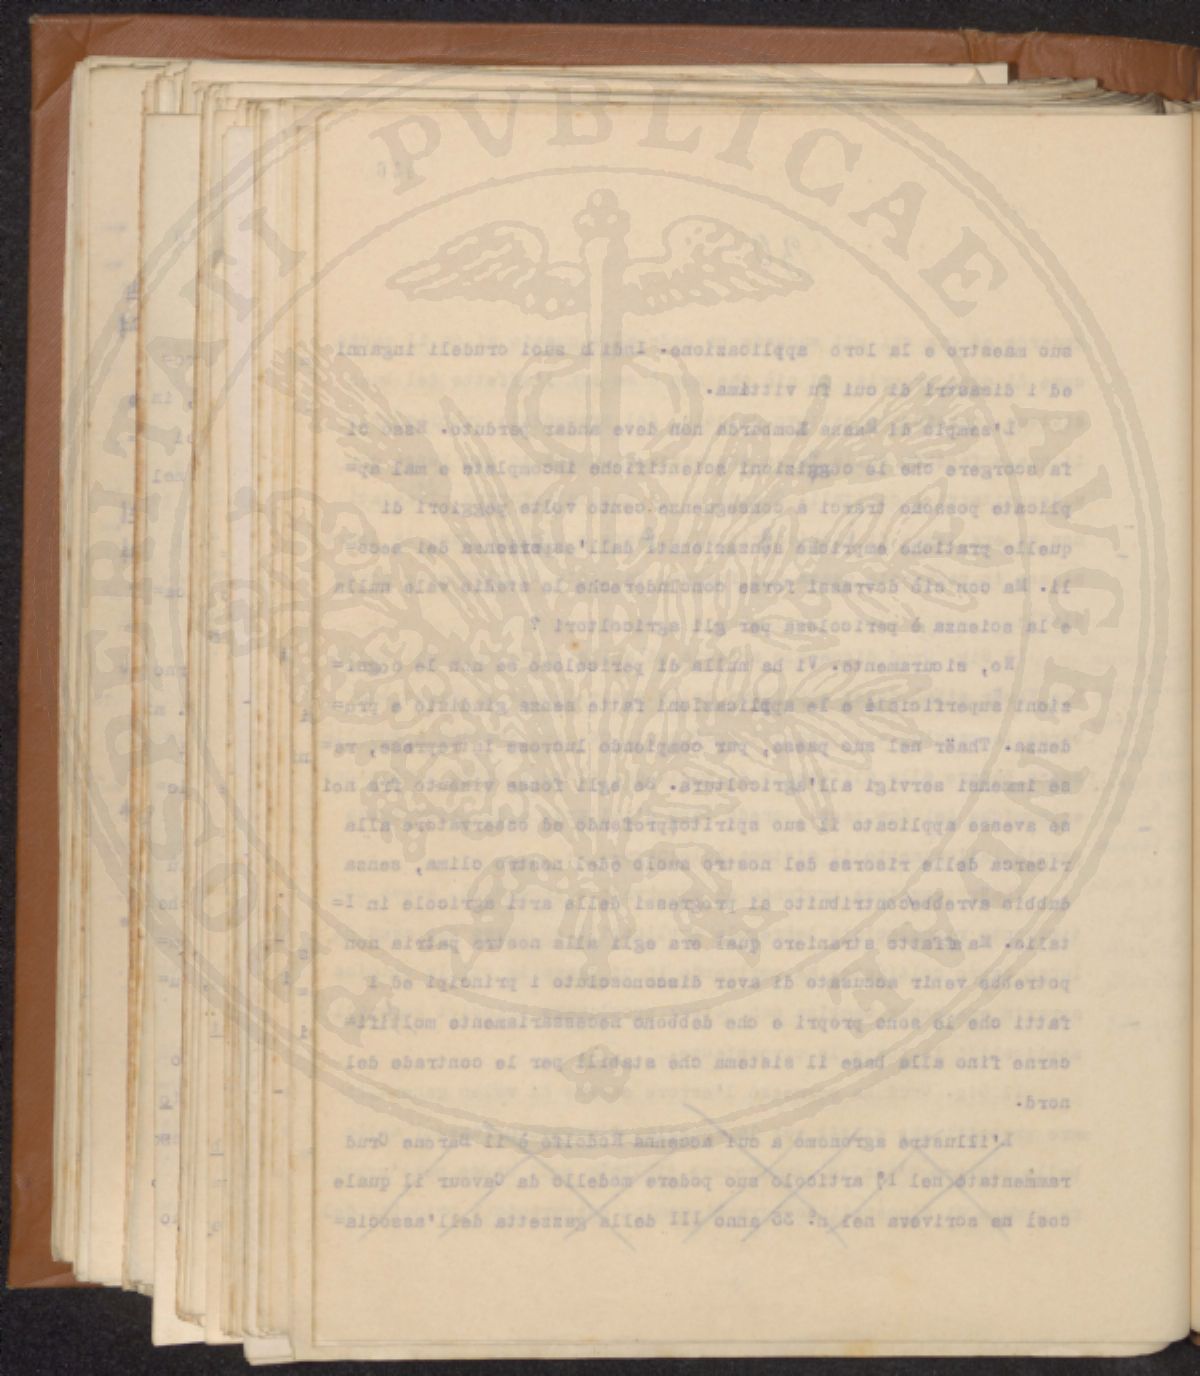 suo maestro e la loro applicazione. Indi i suoi crudeli inganni
ed i disastri di cui fu vittima.
L'esempio di Massa Lombarda non deve andar perduto. Esso ci
fa scorgere che le cognizioni scientifiche incomplete e mal ap=
plicate possono trarci a conseguenze cento volte peggiori di
quelle pratiche empriche sanzionate dall'esperienza dei seco=
li. Ma con ciò dovrassi forse concludereche lo svedio vale nulla
e la scienza è pericolosa per gli agricoltori ?
No, sicuramente. Vi ha nulla di pericoloso se non le cogni=
zioni superficiale e le applicazioni fatte senza giudizio e pru=
denza. Thaër nel suo paese, pur compiendo lucrose intraprese, re=
se immensi servigi all'agricoltura. Se egli fosse vissuto fra noi
se avesse applicato il suo spiritoprofondo ed osservatore alla
ricerca delle risorse del nostro suolo edel nostro clima, senza
dubbio avrebbecontribuito ai progressi delle arti agricole in I=
talia. Maaffatto straniero qual era egli alla nostra patria non
potrebbe venir accusato di aver disconosciuto i principi ed i
fatti che le sono propri e che debbono necessariamente moltifi=
carne fino alle base il sistema che stabilì per le contrade del
nord.
L'illustre agronomo a cui accenna Rodolfo è il Barone Crud
rammentato nel 1° articolo suo podere modello da Cavour il quale
così ne scriveva nel n° 36 anno III della gazzetta dell'associa=
PROSPERITATI PVBLICAE AVGENDAE